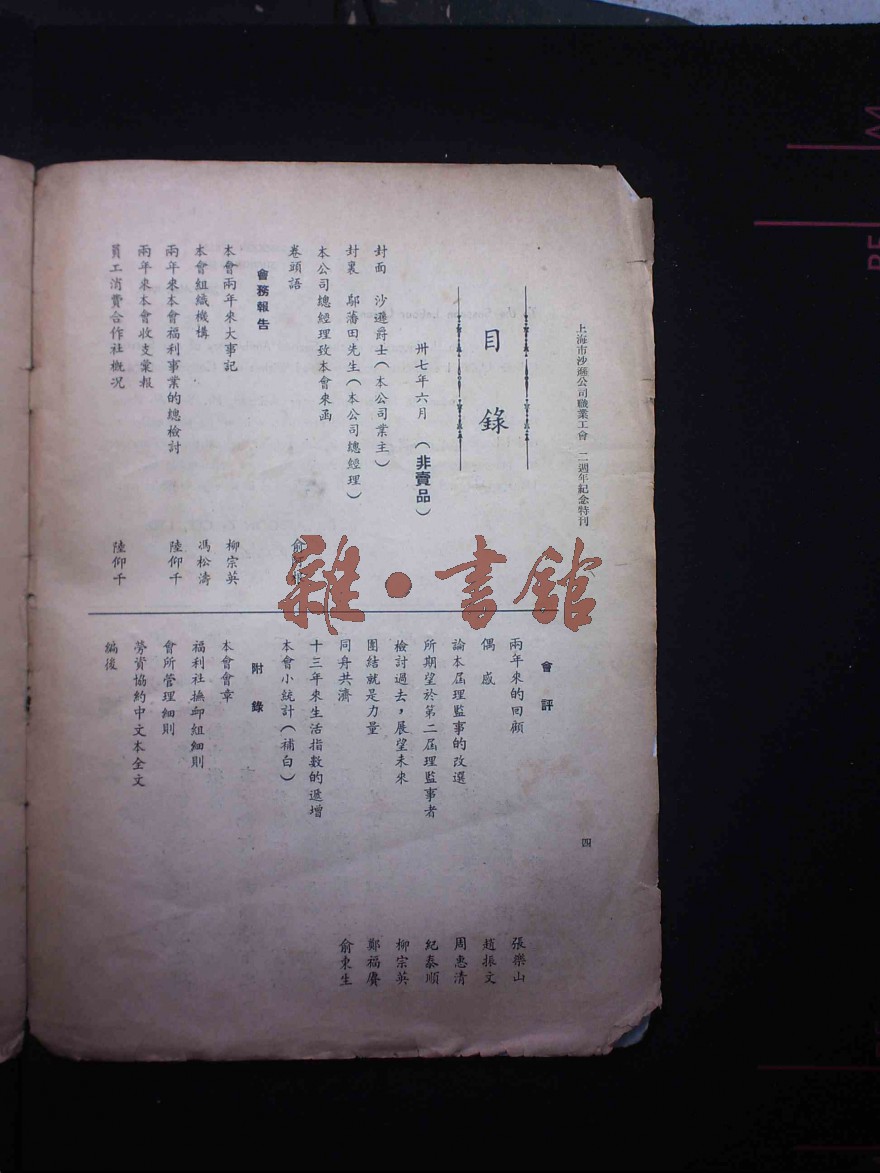 上海市沙遜公司職業工會 二週年紀念特刊
四
目錄
卅七年六月 (非賣品)
封面 沙遜爵士(本公司業主)
封裏 鄔藩田先生(本公司總經理)
本公司總經理致本會來函
卷頭語 俞
會務報告
本會兩年來大事記 柳宗英
本會組織機構 馮松濤
兩年來本會福利事業的總檢討 陸仰千
兩年來本會收支彙報
員工消費合作社概況 陸仰千
會評
兩年來的回顧 張樂山
偶感 趙振文
論本屆理監事的改選 周惠清
所期望於第二屆理監事者 紀泰順
檢討過去，展望未來 柳宗英
團結就是力量 鄭福賡
同舟共濟 俞東生
十三年來生活指數的遞增
本會小統計(補白)
附錄
本會會章
福利社撫卹組細則
會所管理細則
勞資協約中文本全文
編後
雜·書館